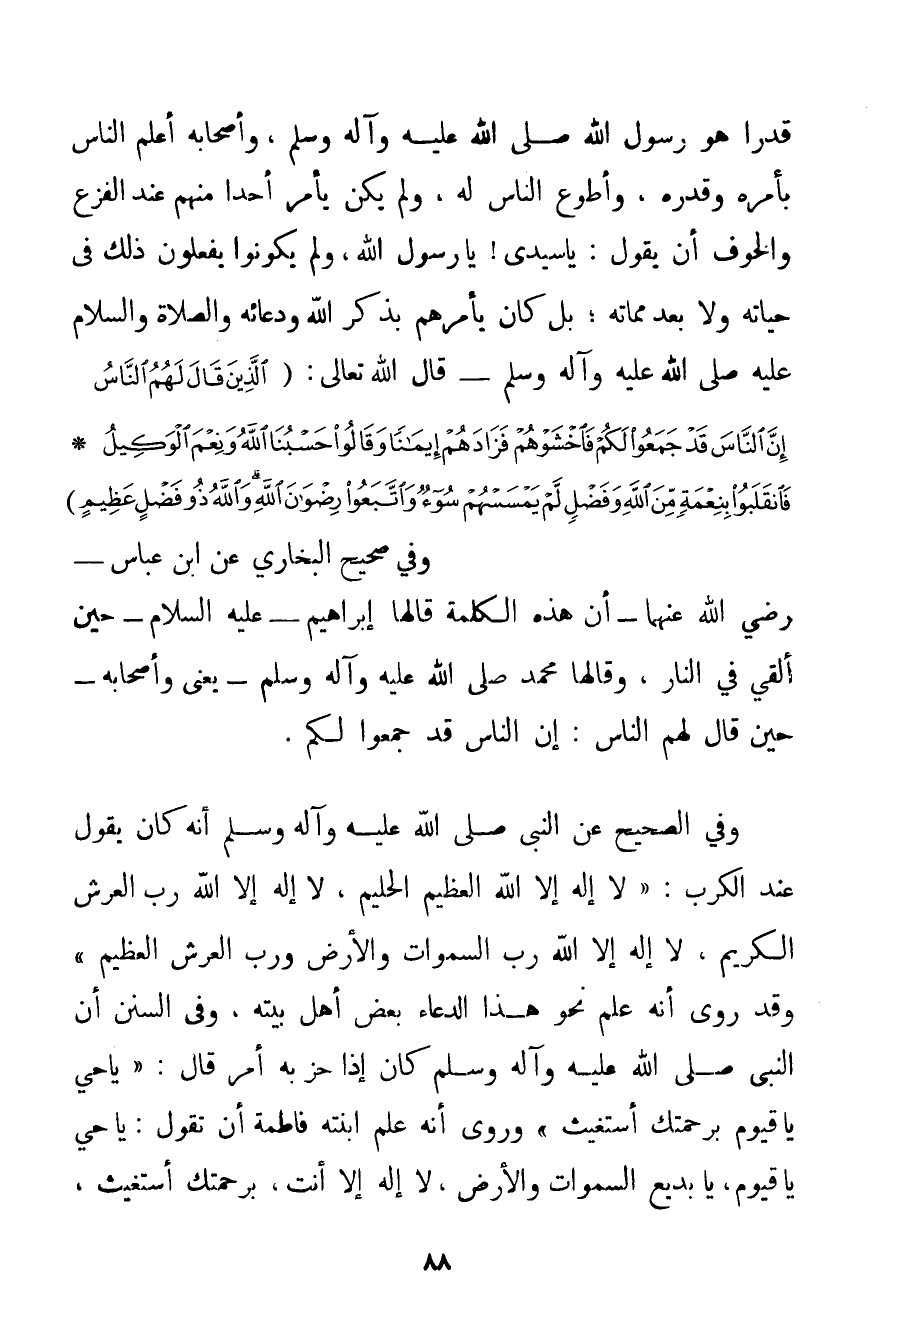 قدرا هو رسول الله صلى الله عليه وآله وسلم ، وأصحابه أعلم الناس
بأمره وقدره ، وأطوع الناس له ، ولم يكن يأمر أحدا منهم عند الفزع
والخوف أن يقول : ياسيدى ! يا رسول الله ، ولم يكونوا يفعلون ذلك فى
حياته ولا بعد مماته ؛ بل كان يأمرهم بذكر الله ودعائه والصلاة والسلام
عليه صلى الله عليه وآله وسلم — قال الله تعالى : ( ٱلَّذِينَ قَالَ لَهُمُ ٱلنَّاسُ
إِنَّ ٱلنَّاسَ قَدْ جَمَعُوا۟ لَكُمْ فَٱخْشَوْهُمْ فَزَادَهُمْ إِيمَـٰنًا وَقَالُوا۟ حَسْبُنَا ٱللَّهُ وَنِعْمَ ٱلْوَكِيلُ *
فَٱنقَلَبُوا۟ بِنِعْمَةٍ مِّنَ ٱللَّهِ وَفَضْلٍ لَّمْ يَمْسَسْهُمْ سُوٓءٌ وَٱتَّبَعُوا۟ رِضْوَٰنَ ٱللَّهِ ۗ وَٱللَّهُ ذُو فَضْلٍ عَظِيمٍ )
وفي صحيح البخاري عن ابن عباس —
رضي الله عنهما — أن هذه الكلمة قالها إبراهيم — عليه السلام — حين
ألقي في النار ، وقالها محمد صلى الله عليه وآله وسلم — يعنى وأصحابه —
حين قال لهم الناس : إن الناس قد جمعوا لكم .
وفي الصحيح عن النبى صلى الله عليه وآله وسلم أنه كان يقول
عند الكرب : « لا إله إلا الله العظيم الحليم ، لا إله إلا الله رب العرش
الكريم ، لا إله إلا الله رب السموات والأرض ورب العرش العظيم »
وقد روى أنه علم نحو هذا الدعاء بعض أهل بيته ، وفى السنن أن
النبى صلى الله عليه وآله وسلم كان إذا حزبه أمر قال : « ياحي
يا قيوم برحمتك أستغيث » وروى أنه علم ابنته فاطمة أن تقول : يا حي
يا قيوم ، يا بديع السموات والأرض ، لا إله إلا أنت ، برحمتك أستغيث ،
٨٨